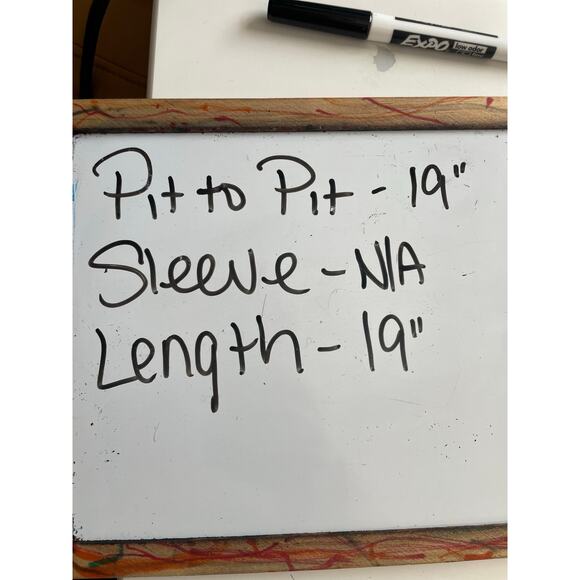 EXPO low odor
Pit to Pit - 19"
Sleeve - N/A
Length - 19"